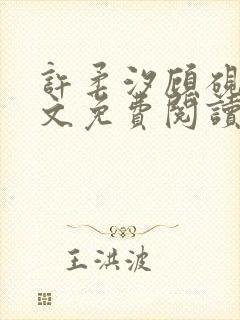 許柔汐顾硯
文免費閱讀
王洪波